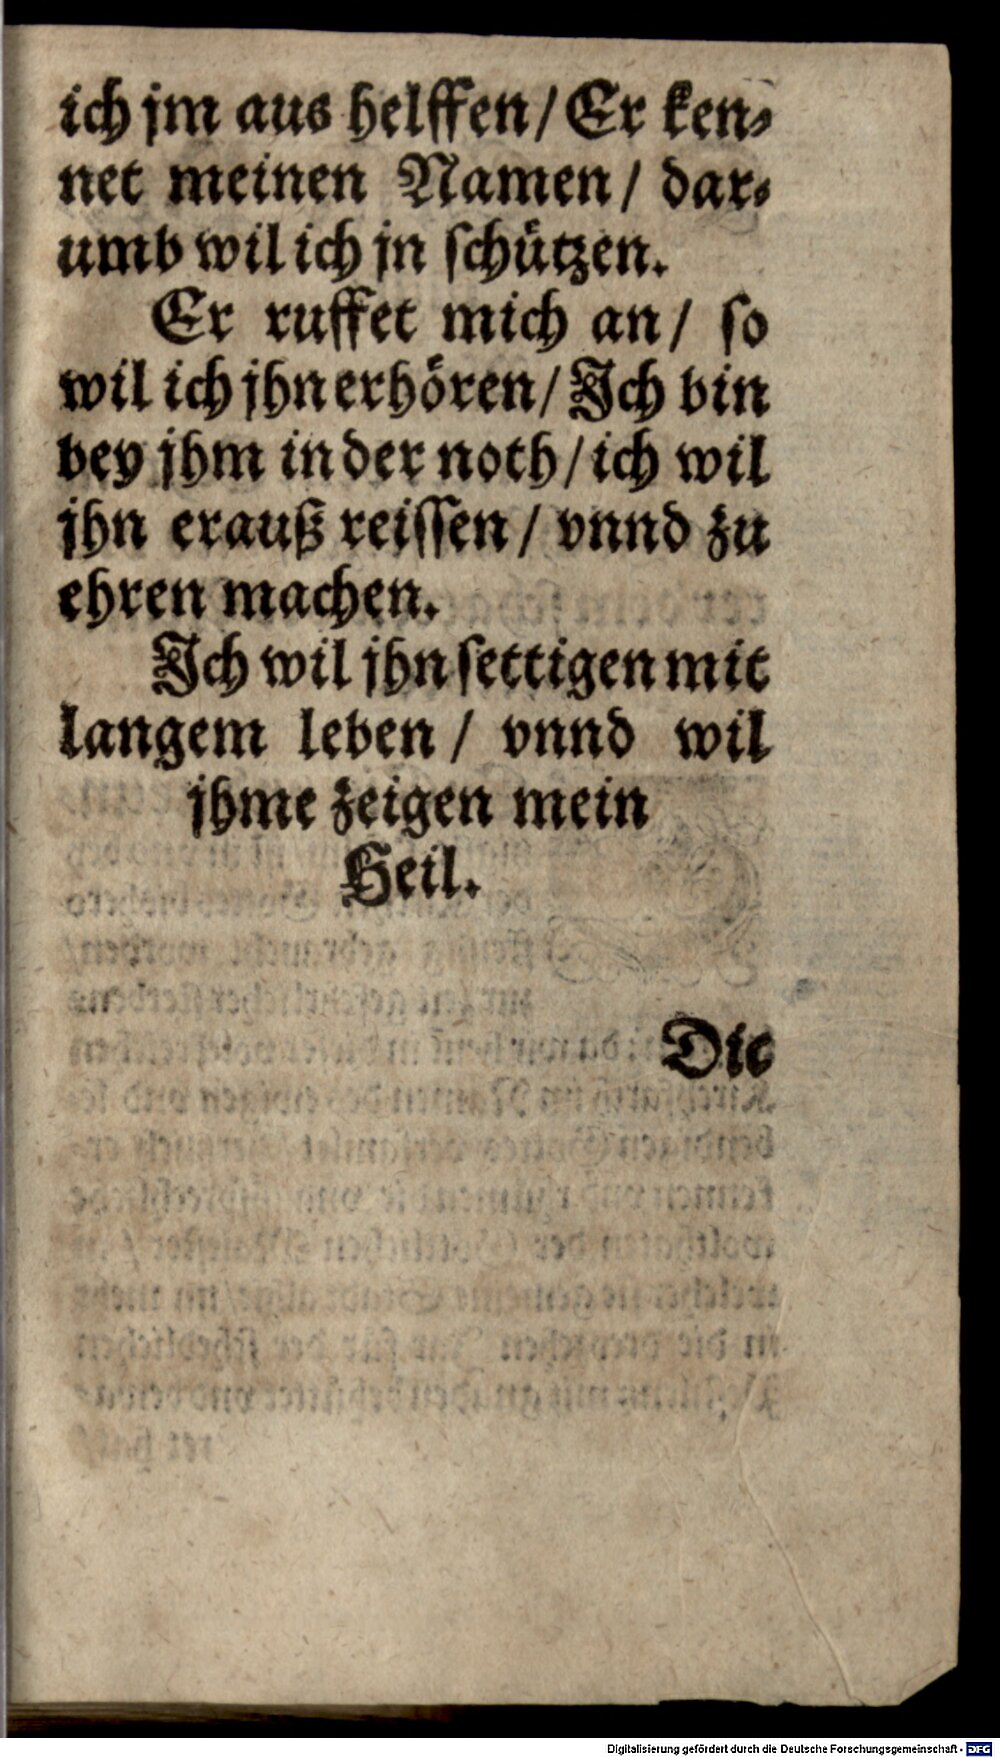 ich jm aus helffen / Er ken⸗
net meinen Namen / dar⸗
umb wil ich jn schützen.
Er ruffet mich an / so
wil ich jhn erhören / Ich bin
bey jhm in der noth / ich wil
jhn erauß reissen / vnnd zu
ehren machen.
Ich wil jhn settigen mit
langem leben / vnnd wil
jhme zeigen mein
Heil.
Die
Digitalisierung gefördert durch die Deutsche Forschungsgemeinschaft - DFG